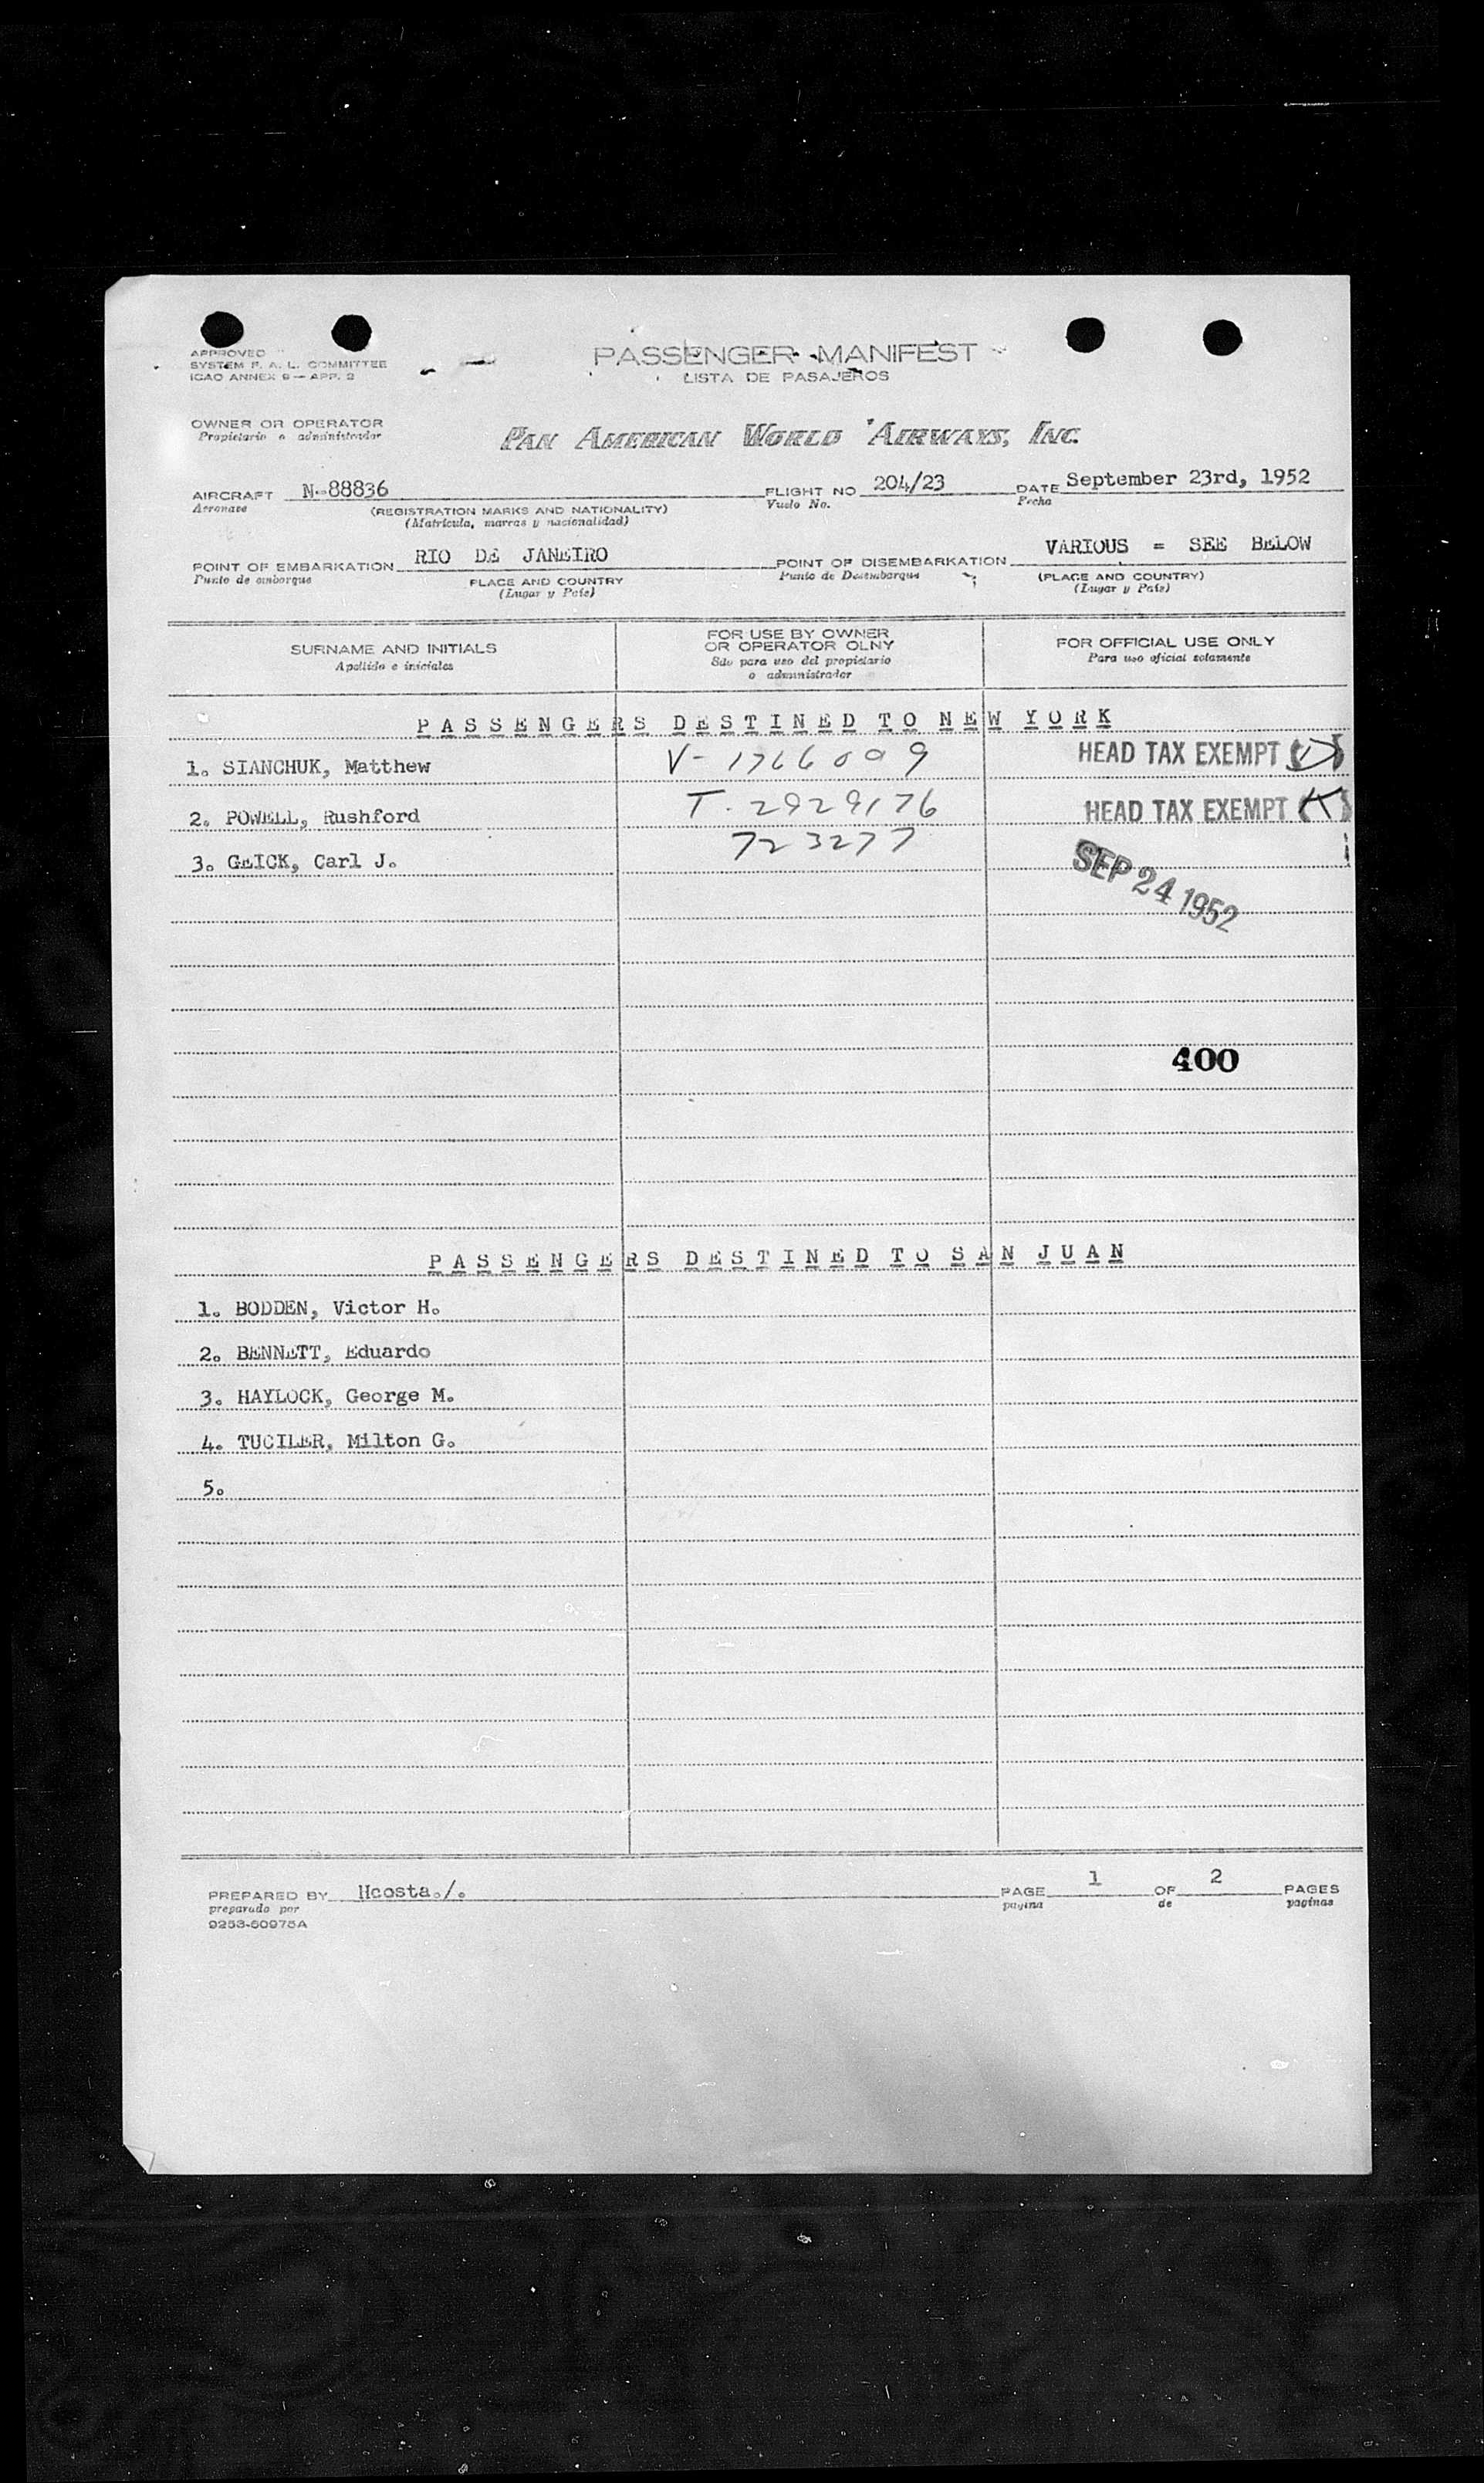 APPROVED
SYSTEM F. A. L. COMMITTEE
ICAO ANNEX 9 — APP. 2
PASSENGER MANIFEST
LISTA DE PASAJEROS
OWNER OR OPERATOR
Propietario o administrador
PAN AMERICAN WORLD AIRWAYS, INC.
AIRCRAFT N-88836 FLIGHT NO 204/23 DATE September 23rd, 1952
Aeronave (REGISTRATION MARKS AND NATIONALITY) Vuelo No. Fecha
(Matrícula, marcas y nacionalidad)
POINT OF EMBARKATION RIO DE JANEIRO POINT OF DISEMBARKATION VARIOUS = SEE BELOW
Punto de emborque PLACE AND COUNTRY Punto de Desembarque (PLACE AND COUNTRY)
(Lugar y País) (Lugar y País)
SURNAME AND INITIALS
Apellido e iniciales
FOR USE BY OWNER
OR OPERATOR OLNY
Sólo para uso del propietario
o administrador
FOR OFFICIAL USE ONLY
Para uso oficial solamente
PASSENGERS DESTINED TO NEW YORK
1. SIANCHUK, Matthew V-1766009 HEAD TAX EXEMPT
2. POWELL, Rushford T-2929176 HEAD TAX EXEMPT
3. GEICK, Carl J. 723277
SEP 24 1952
400
PASSENGERS DESTINED TO SAN JUAN
1. BODDEN, Victor H.
2. BENNETT, Eduardo
3. HAYLOCK, George M.
4. TUCILER, Milton G.
5.
PREPARED BY Hcosta./. PAGE 1 OF 2 PAGES
preparado por pagina de paginas
9253-50975A